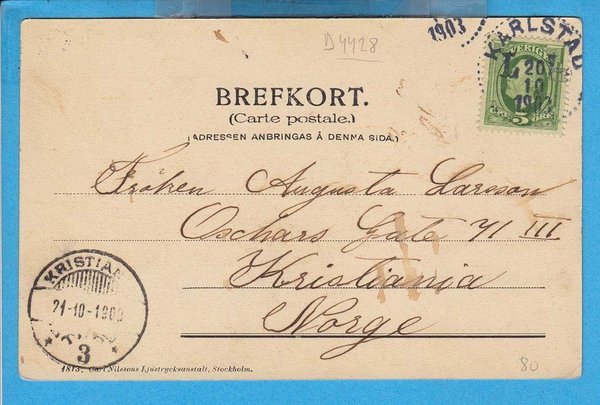 D 4428
1903
KARLSTAD
SVERIGE
L
20
10
1903
5 ÖRE
BREFKORT.
(Carte postale.)
(ADRESSEN ANBRINGAS Å DENNA SIDA.)
Fröken Augusta Larsson
Oschars Gate 71 III
Kristiania
Norge
KRISTIANIA
21-10-1903
3
1813; Carl Nilssons Ljustrycksanstalt, Stockholm.
80